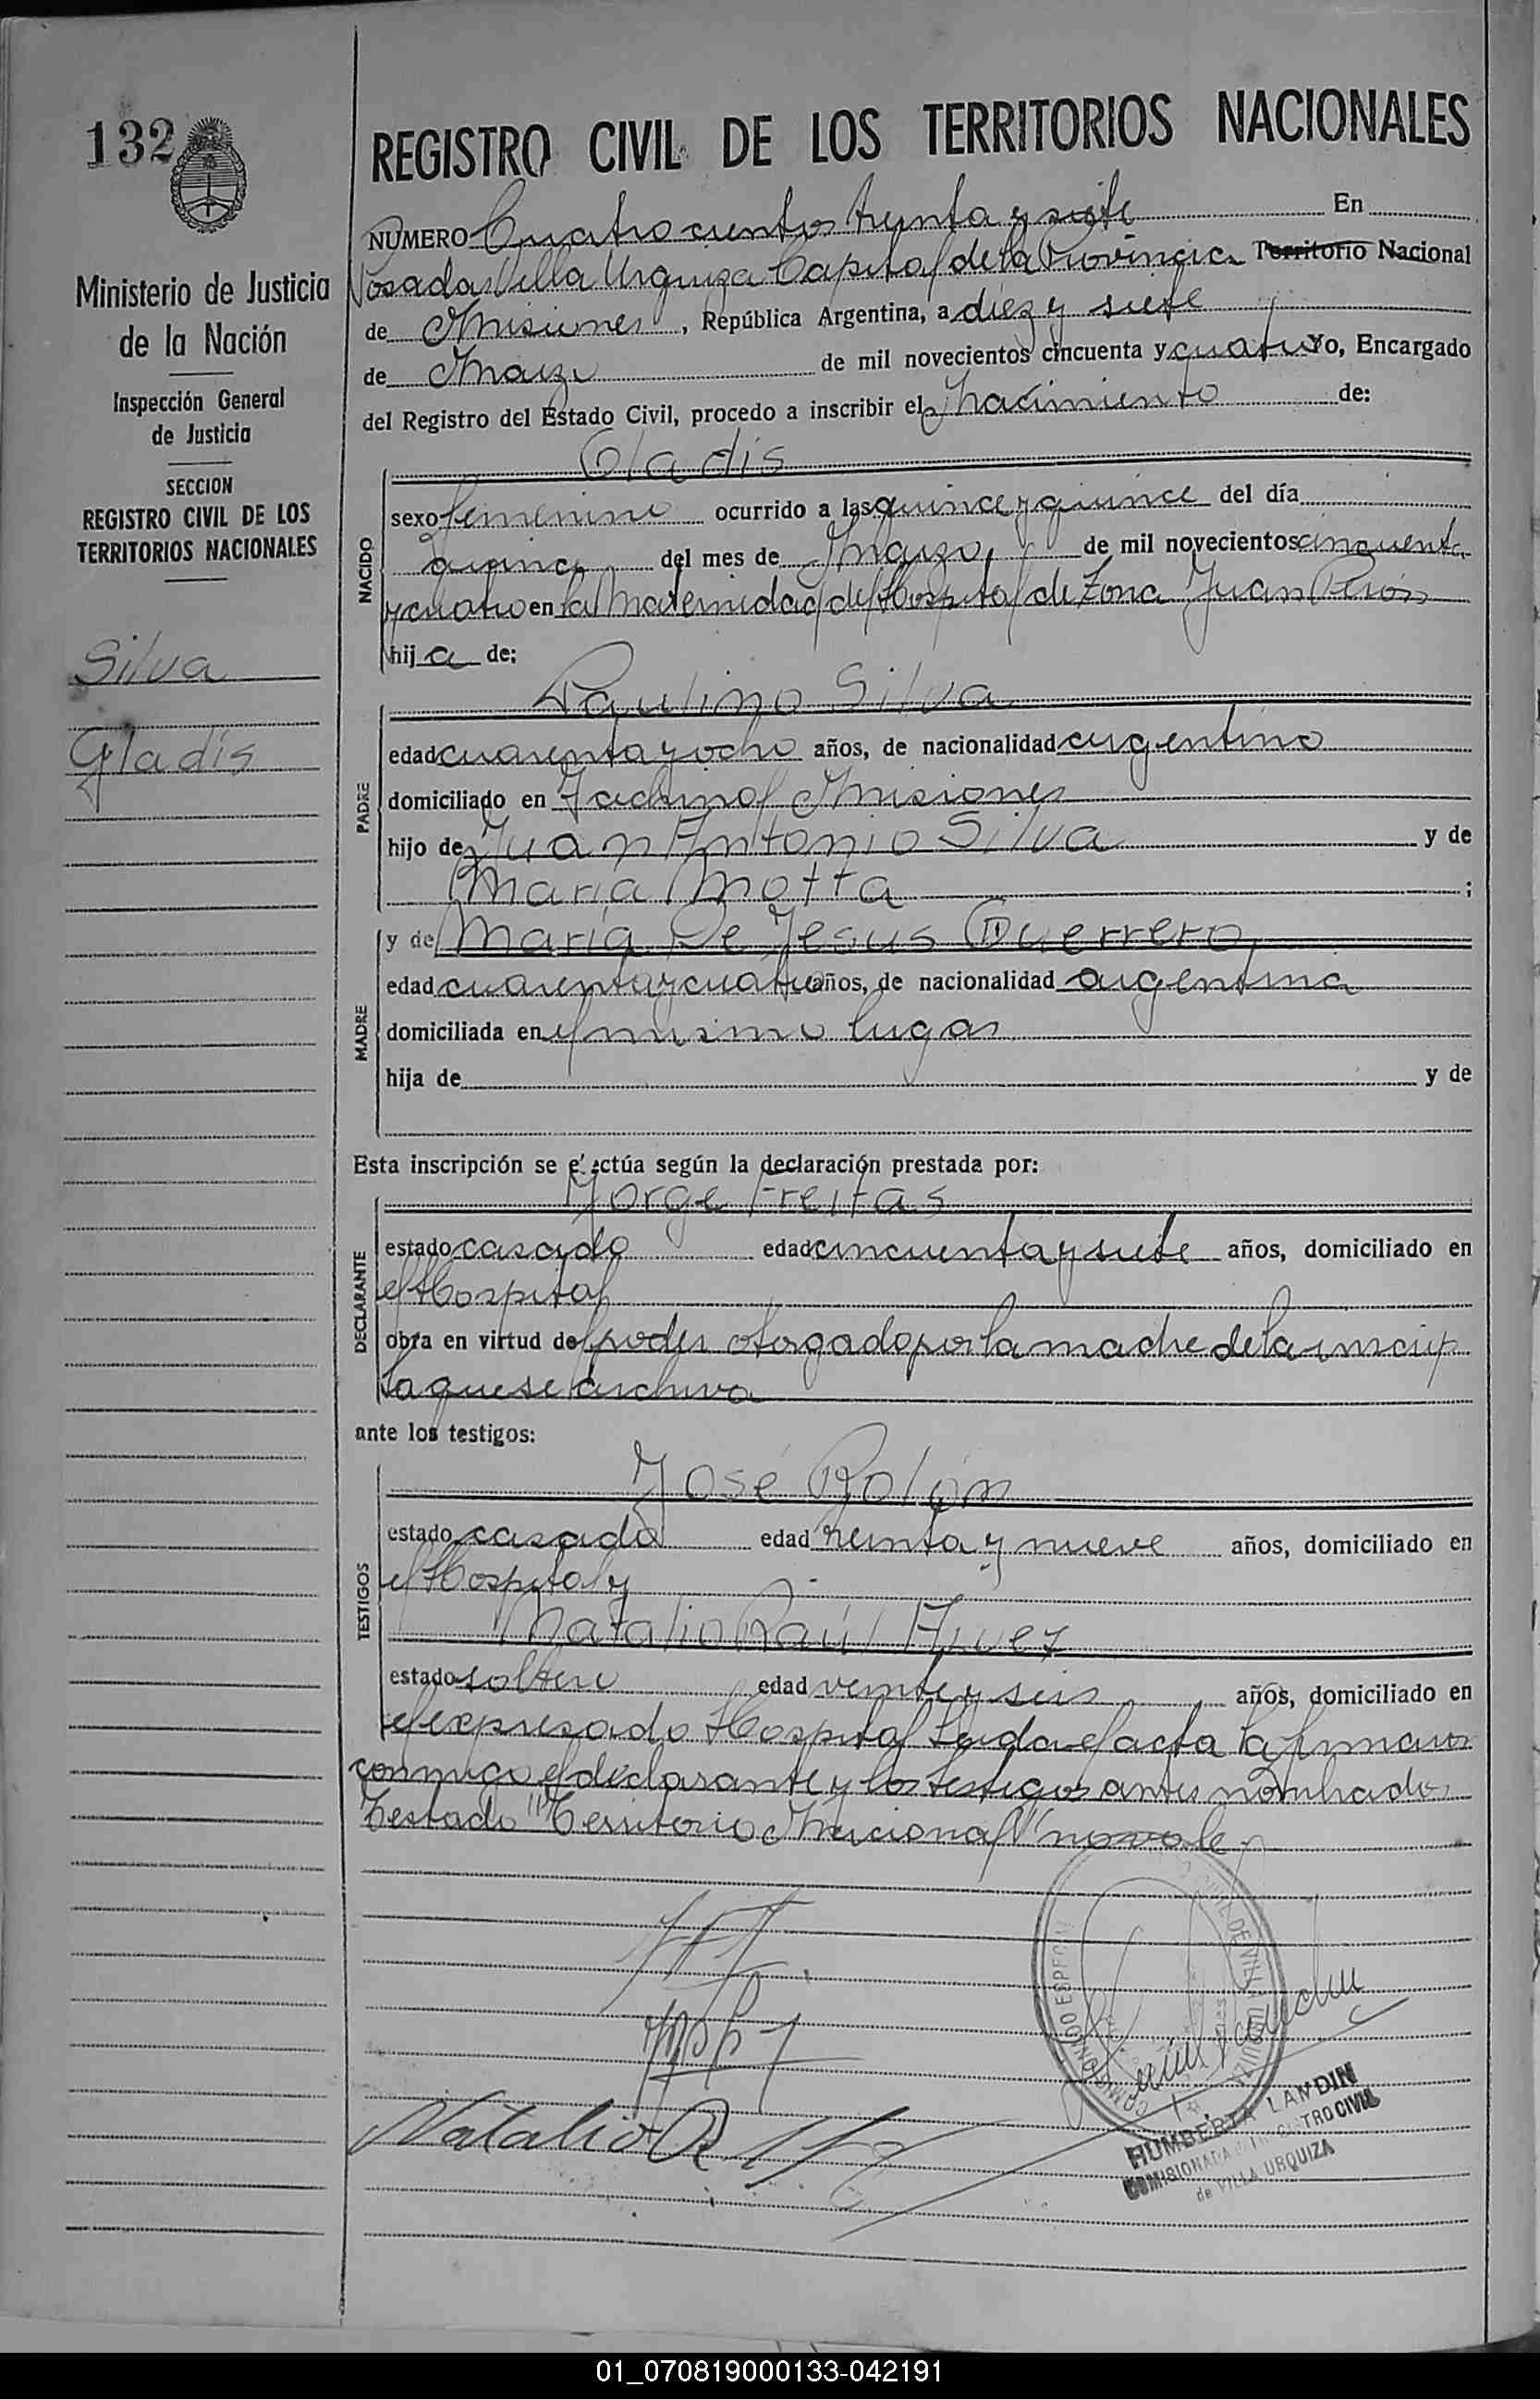 132
REGISTRO CIVIL DE LOS TERRITORIOS NACIONALES
Ministerio de Justicia
de la Nación
Inspección General
de Justicia
SECCION
REGISTRO CIVIL DE LOS
TERRITORIOS NACIONALES
Silva
Gladis
NUMERO Cuatrocientos treinta y siete En
Posadas Villa Urquiza Capital de la Provincia Territorio Nacional
de Misiones, República Argentina, a diez y siete
de Marzo de mil novecientos cincuenta y cuatro Yo, Encargado
del Registro del Estado Civil, procedo a inscribir el nacimiento de:
Gladis
NACIDO
sexo femenino ocurrido a las quince y quince del día
quince del mes de Marzo, de mil novecientos cincuenta
y cuatro en la Maternidad del Hospital de Zona Juan Perón
hija de:
Paulino Silva
PADRE
edad cuarenta y ocho años, de nacionalidad argentino
domiciliado en Fachinal Misiones
hijo de Juan Antonio Silva y de
María Motta;
MADRE
y de María De Jesus Guerrero,
edad cuarenta y cuatro años, de nacionalidad argentina
domiciliada en el mismo lugar
hija de y de
Esta inscripción se efectúa según la declaración prestada por:
Jorge Freitas
DECLARANTE
estado casado edad cincuenta y siete años, domiciliado en
el Hospital
obra en virtud del poder otorgado por la madre de la inscrip
ta que se archiva
ante los testigos:
José Rolón
TESTIGOS
estado casado edad treinta y nueve años, domiciliado en
el Hospital y
Natalio Raúl
estado soltero edad veinte y seis años, domiciliado en
el expresado Hospital Leída el acta la firman
conmigo el declarante y los testigos antes nombrados
Testado "Territorio Nacional" no vale
Natalio R
HUMBERTA LANDIN
COMISIONADA REGISTRO CIVIL
de VILLA URQUIZA
01_070819000133-042191